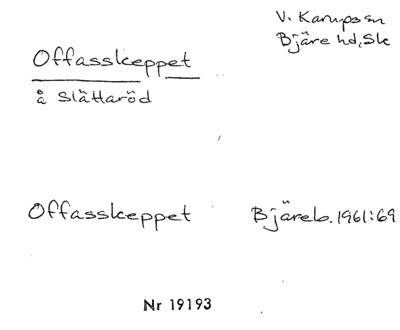 V. Karups sn
Bjäre hd, Sk
Offasskeppet
å Slättaröd
Offasskeppet Bjäreb. 1961:69
Nr 19193